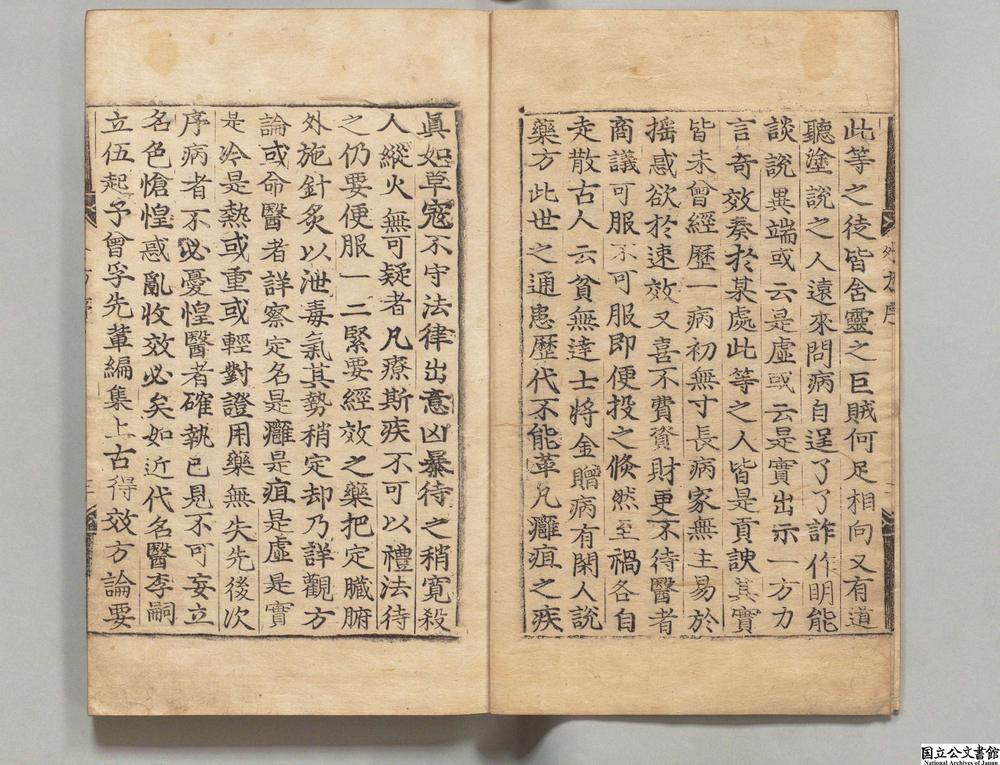 此等之徒皆含靈之巨賊何足相向又有道
聽塗說之人遠來問病自逞了了詐作明能
談說異端或云是虛或云是實出示一方力
言奇效奏於某處此等之人皆是貢諛其實
皆未曾經歷一病初無寸長病家無主易於
搖惑欲於速效又喜不費資財更不待醫者
商議可服不可服即便投之倐然至禍各自
走散古人云貧無達士將金贈病有閑人說
藥方此世之通患歷代不能革凡癰疽之疾
眞如草寇不守法律出意凶暴待之稍寬殺
人縱火無可疑者凡療斯疾不可以禮法待
之仍要便服一二緊要經效之藥把定臟腑
外施針炙以泄毒氣其勢稍定却乃詳觀方
論或命醫者詳察定名是癰是疽是虛是實
是冷是熱或重或輕對證用藥無失先後次
序病者不必憂惶醫者確執已見不可妄立
名色愴惶惑亂收效必矣如近代名醫李嗣
立伍起予曾孚先軰編集上古得效方論要
外方序
二
方序
三
国立公文書館
National Archives of Japan